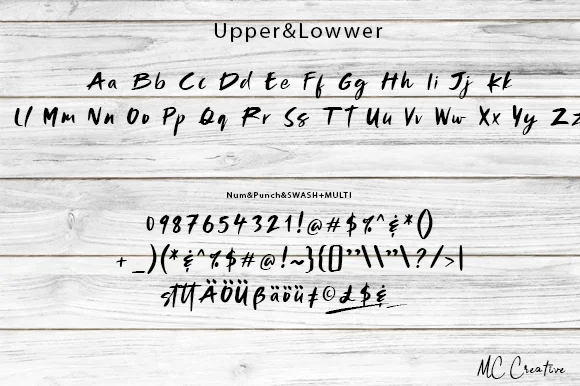 Upper&Lowwer
Aa Bb Cc Dd Ee Ff Gg Hh Ii Jj Kk
Ll Mm Nn Oo Pp Qq Rr Ss Tt Uu Vv Ww Xx Yy Zz
Num&Punch&SWASH+MULTI
0987654321!@#$%^&*()
+_)(*&^%$#@!~}{[]"\\"\?/>|
ÄÖÜßäöü
MC Creative